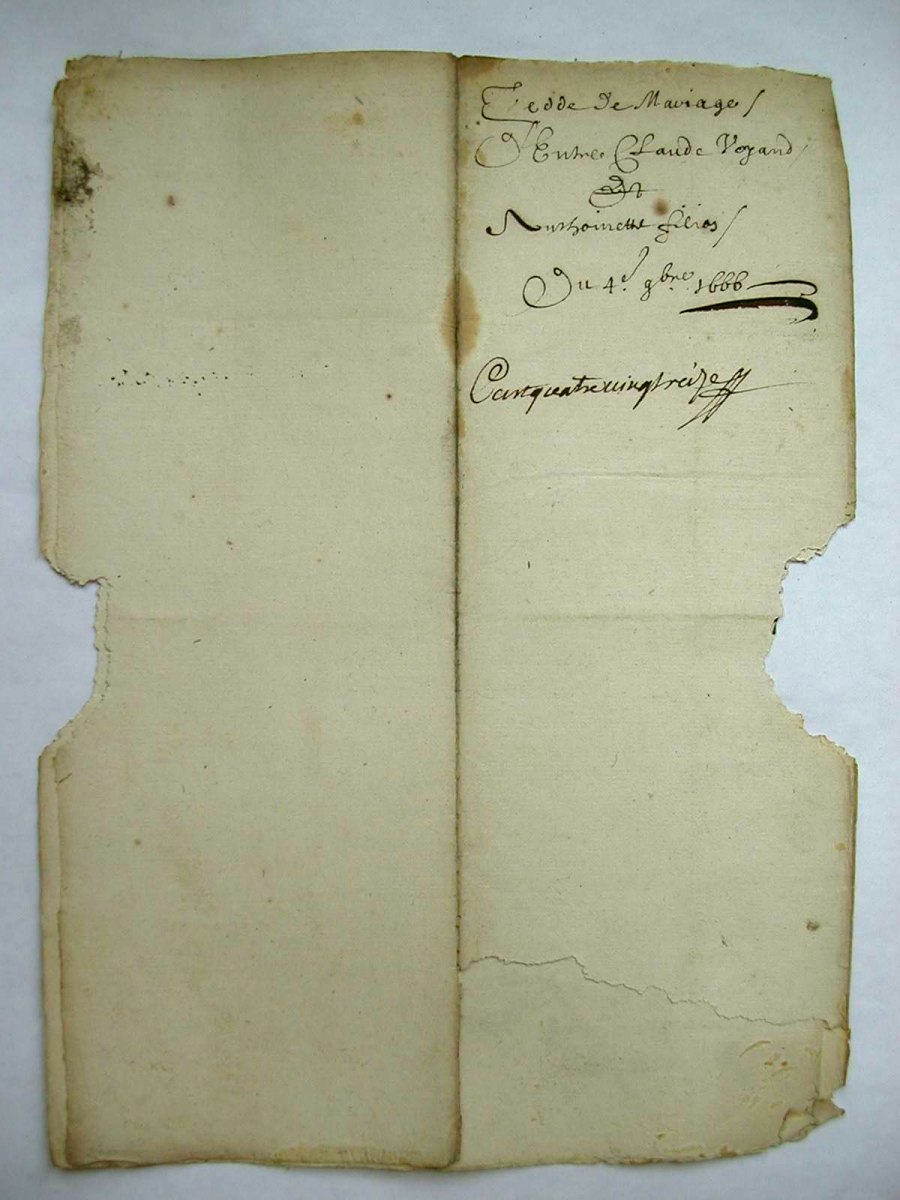 Tedde de Mariage /
D'Entre Claude Voyand /
Et
Anthoinette filios /
Du 4e. 9bre. 1666
Cent quatre uingt treize